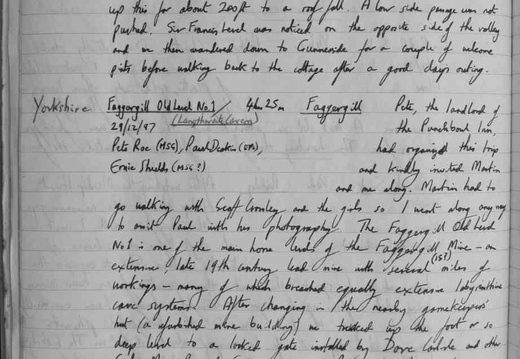 up this for about 200ft to a roof fall. A low side passage was not
pushed. Sir Francis Level was noticed on the opposite side of the valley
and we then wandered down to Gunnerside for a couple of welcome
pints before walking back to the cottage after a good days outing.
Yorkshire Faggergill Old Level No.1/ 4h 25m Faggergill Pete, the landlord of
29/12/97 (Langthwaite Cavern) the Punchbowl Inn,
Pete Roe (MSG), Paul Deakin (OR), had organized this trip
Ernie Shields (MSG?) and kindly invited Martin
and me along. Martin had to
go walking with Geoff Cronley and the girls so I went along any way
to assist Paul with his photography. The Faggergill Old Level
No 1 is one of the main horse levels of the Faggergill Mine - an
extensive, late 19th century lead mine with several (15?) miles of
workings - many of which breached equally extensive labyrinthine
cave systems. After changing in the nearby gamekeepers'
hut (a refurbished mine building) we trekked up the foot or so
deep level to a locked gate installed by Dave Carlisle and other